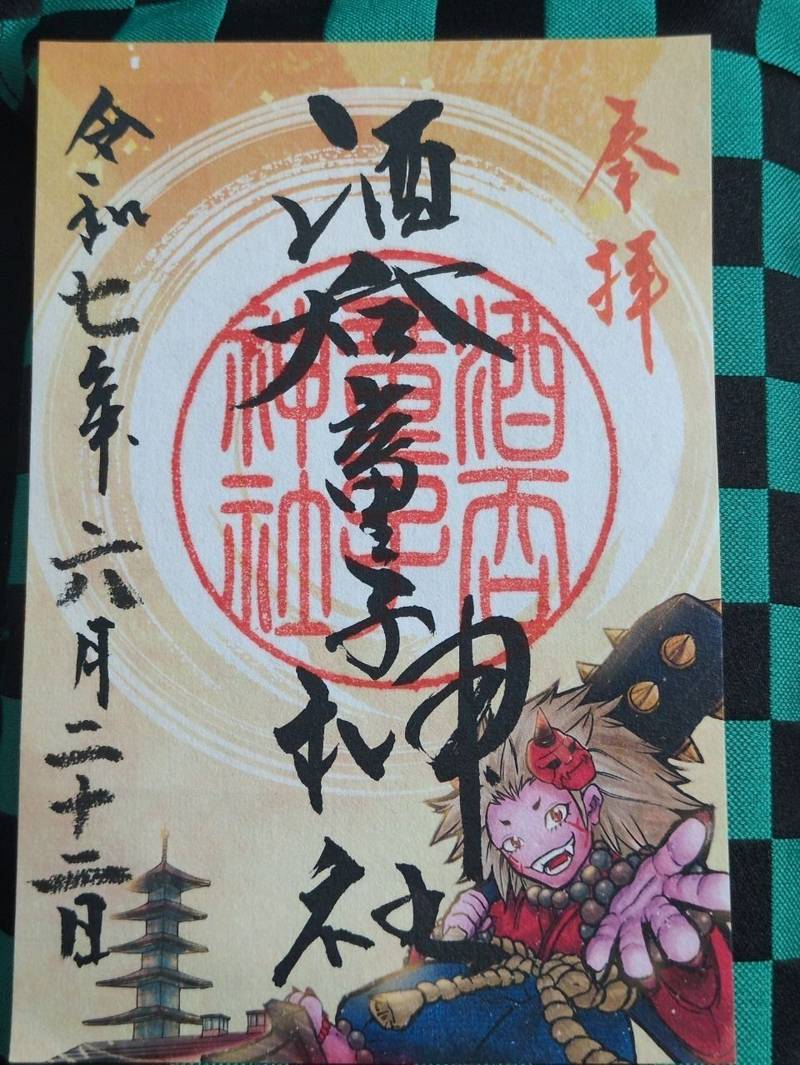 奉拝
酒呑童子神社
酒呑
童子
神社
令和七年六月二十二日